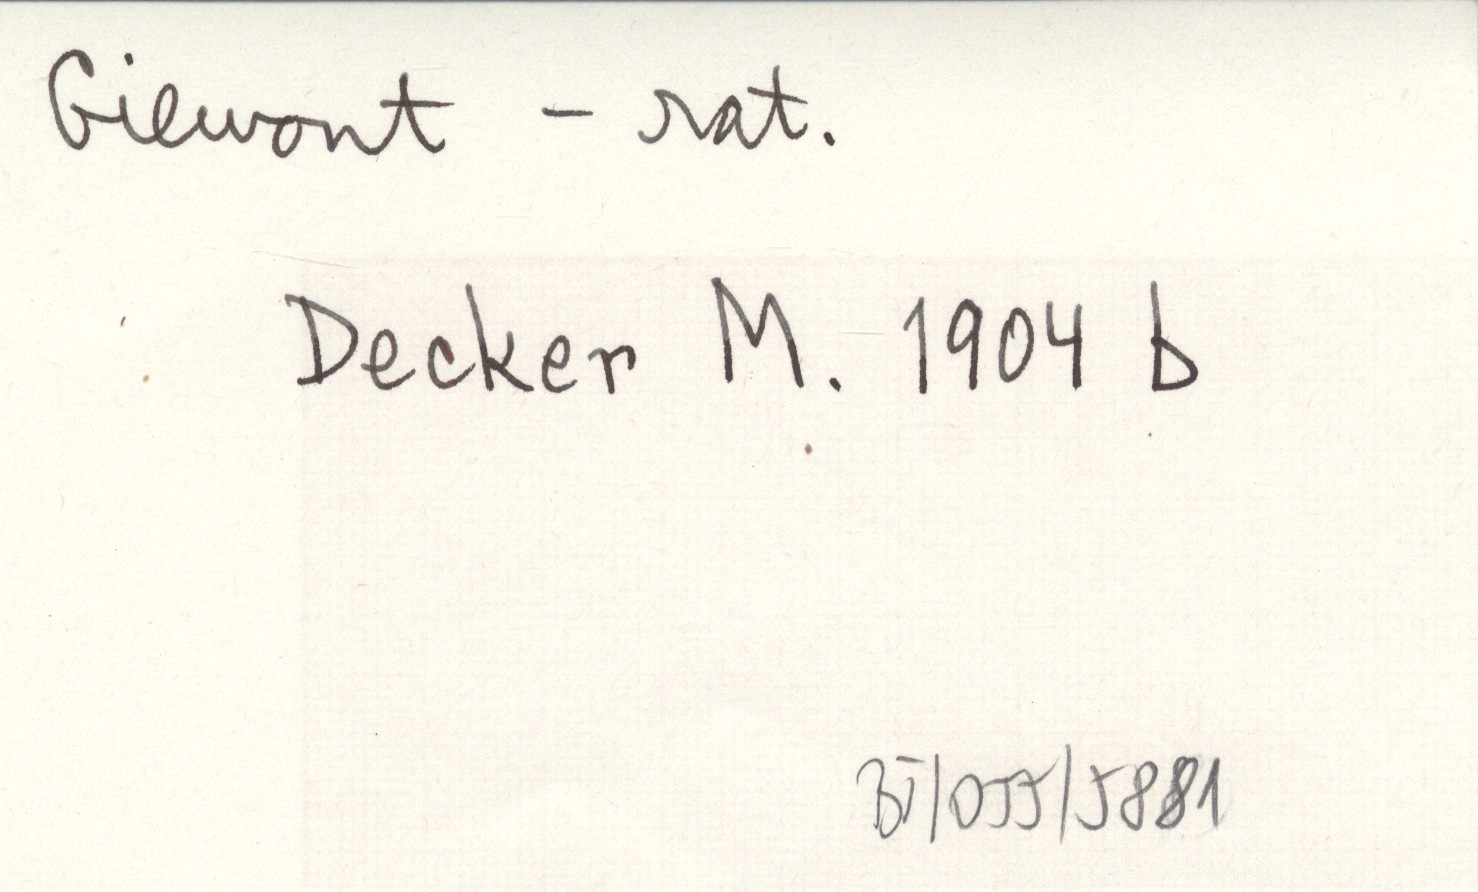 Giewont - rat.
Decker M. 1904 b
BJ/055/5881